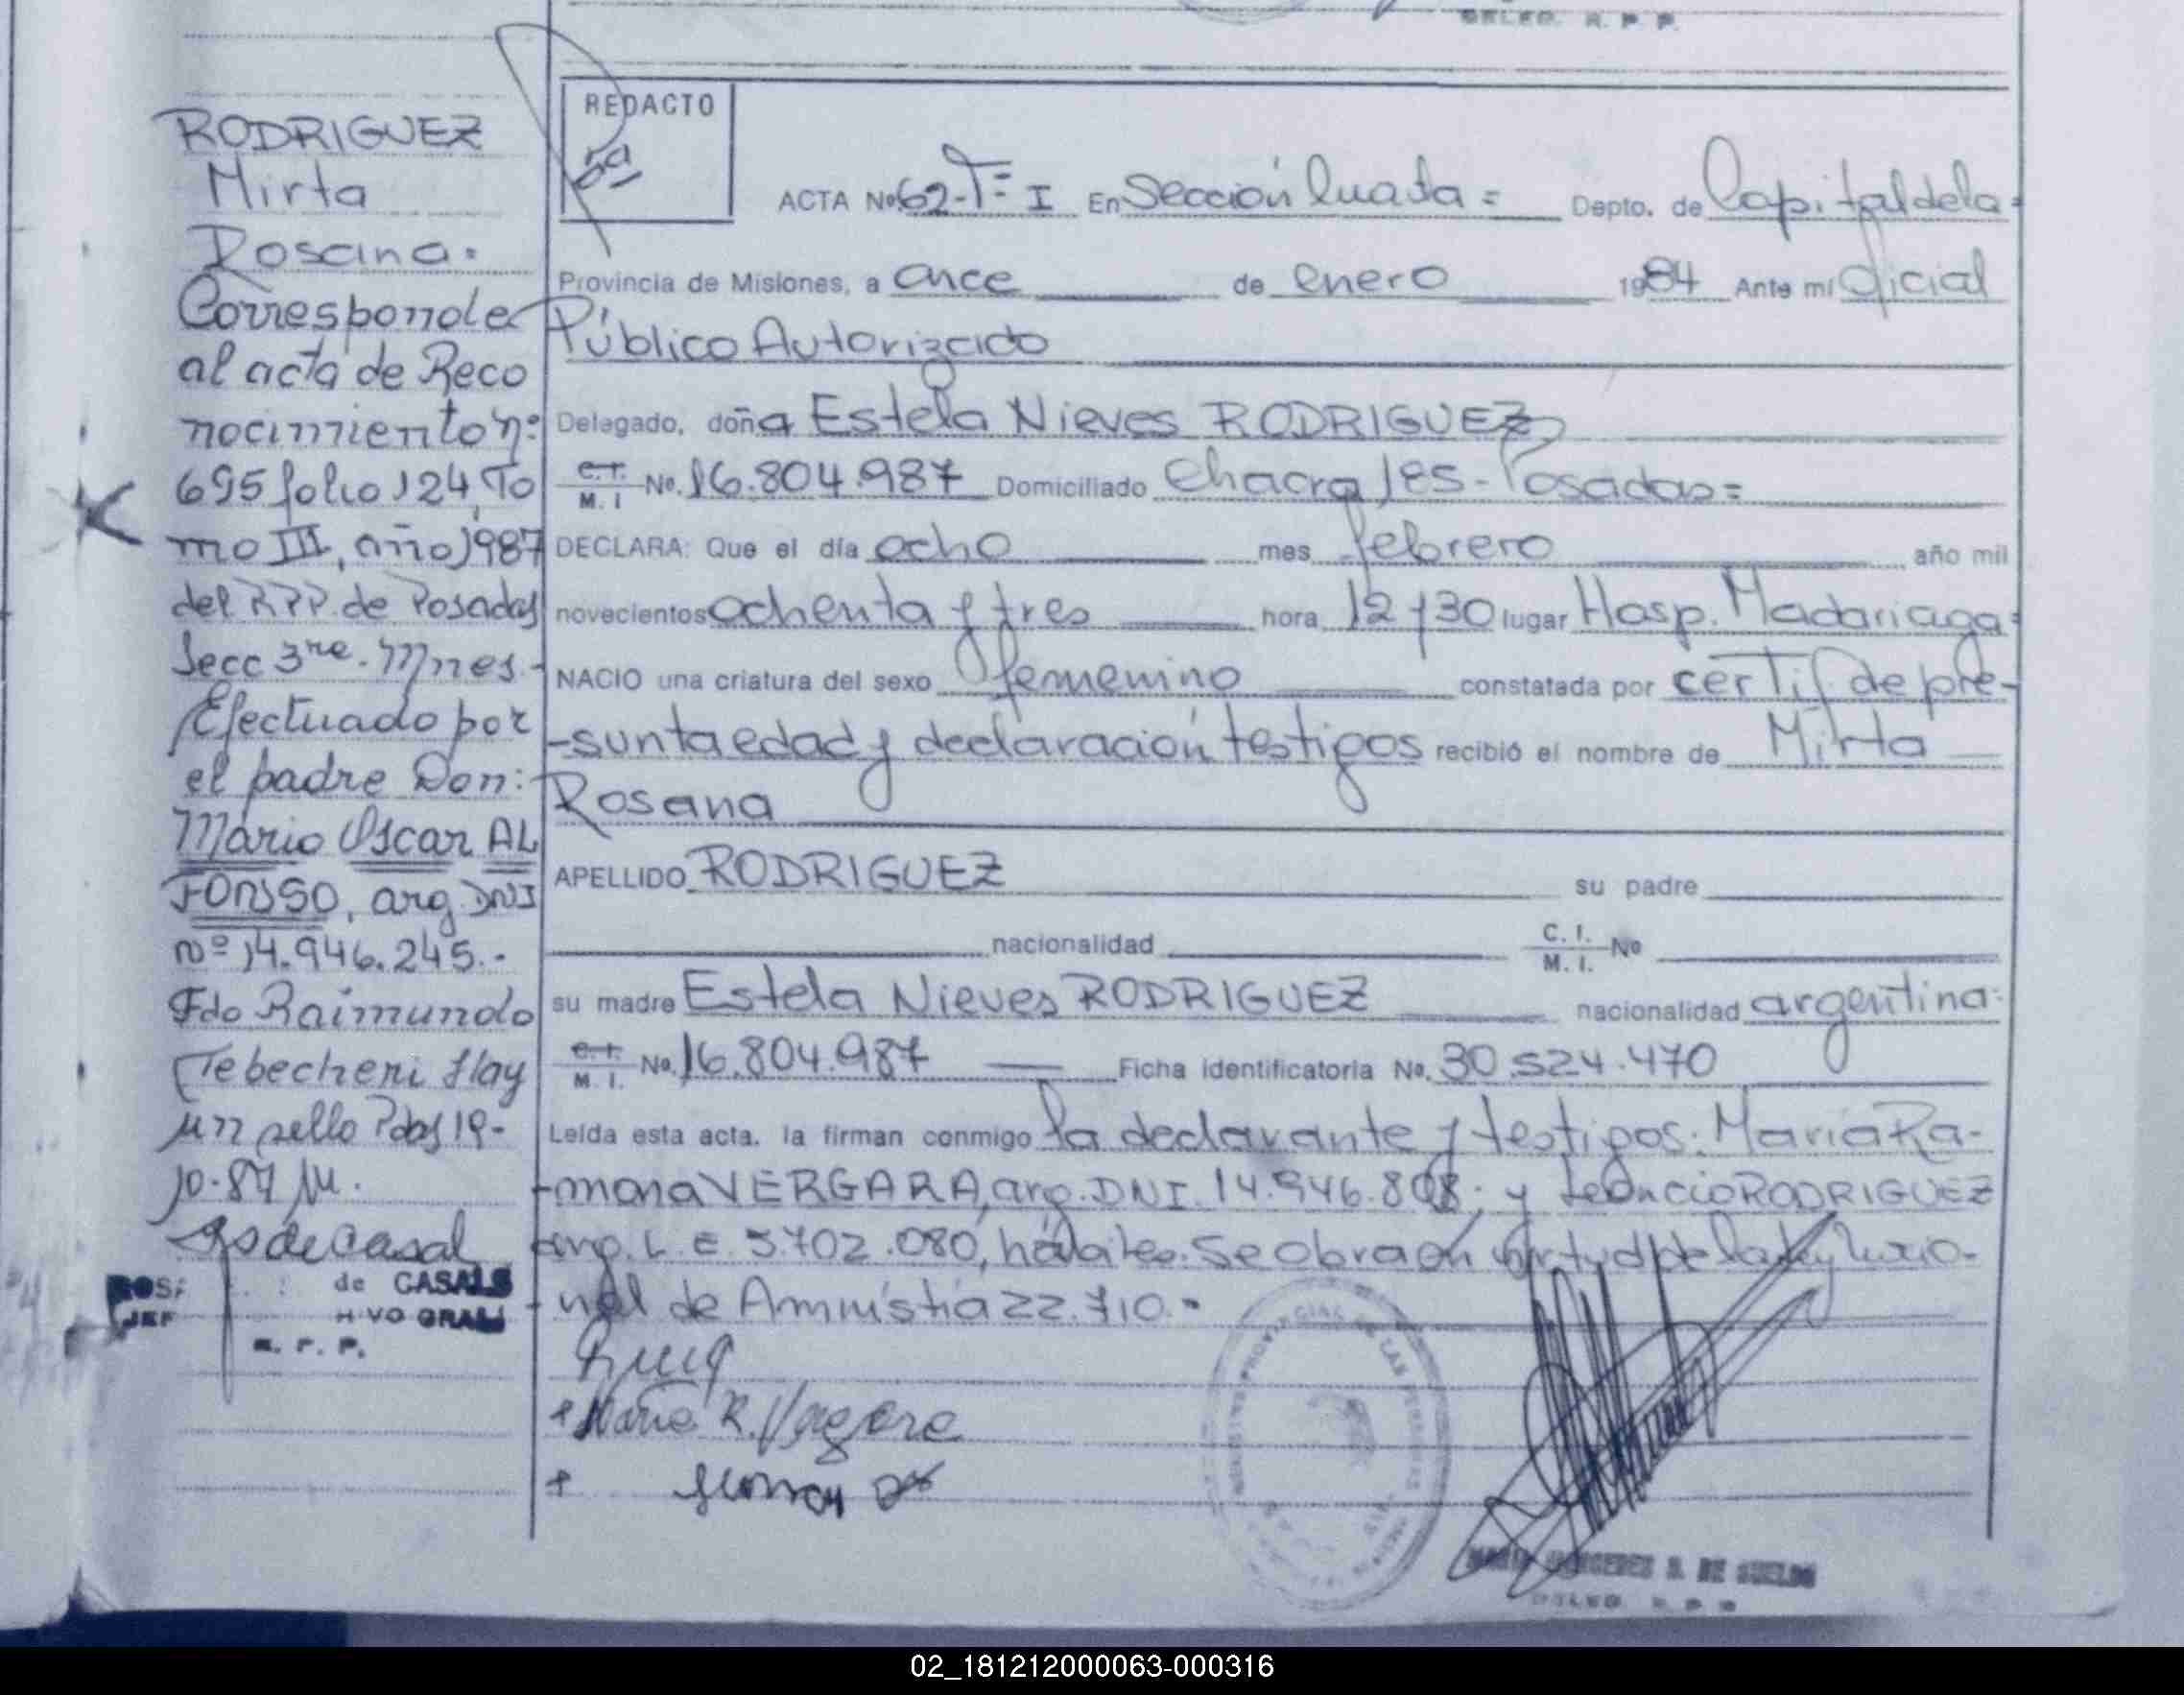 DELEG. R. P. P.
RODRIGUEZ
Mirta
Rosana.
Corresponde
al acta de Reco
nocimiento nº
695 folio 124, To
mo III, año 1987
del RPP. de Posadas
Secc 3ra. Mnes.-
Efectuado por
el padre Don:
Mario Oscar AL
FONSO, arg. DNI
nº 14.946.245.-
Fdo Raimundo
Tebecheri Hay
un sello Pdas 19-
10-87
de Casal
ROS de CASALS
JEF HIVO GRAL
R. P. P.
REDACTO
ACTA No 62-Tº I En Sección Cuarta = Depto. de Capital de la =
Provincia de Misiones, a once de enero 1984 Ante mí Oficial
Público Autorizado
Delegado, doña Estela Nieves RODRIGUEZ
C.I. M. I No. 16.804.987 Domiciliado Chacra 185 - Posadas =
DECLARA: Que el día ocho mes febrero año mil
novecientos ochenta y tres hora 12 y 30 lugar Hosp. Madariaga =
NACIO una criatura del sexo femenino constatada por certif de pre-
-sunta edad y declaración testigos recibió el nombre de Mirta
Rosana
APELLIDO RODRIGUEZ su padre
nacionalidad C. I. M. I. No
su madre Estela Nieves RODRIGUEZ nacionalidad argentina.
C.I. M. I. No. 16.804.987 Ficha identificatoria No. 30.524.470
Leída esta acta, la firman conmigo la declarante y testigos: María Ra-
-mona VERGARA, arg. DNI. 14.946.808. y Leoncio RODRIGUEZ
arg. L. E. 5702.080, hábiles. Se obra en virtud de la Ley Nacio-
-nal de Amnistía 22.710.-
+ María R. Vergara
+
DE SUELDO
DELEG. R. P. P.
02_181212000063-000316